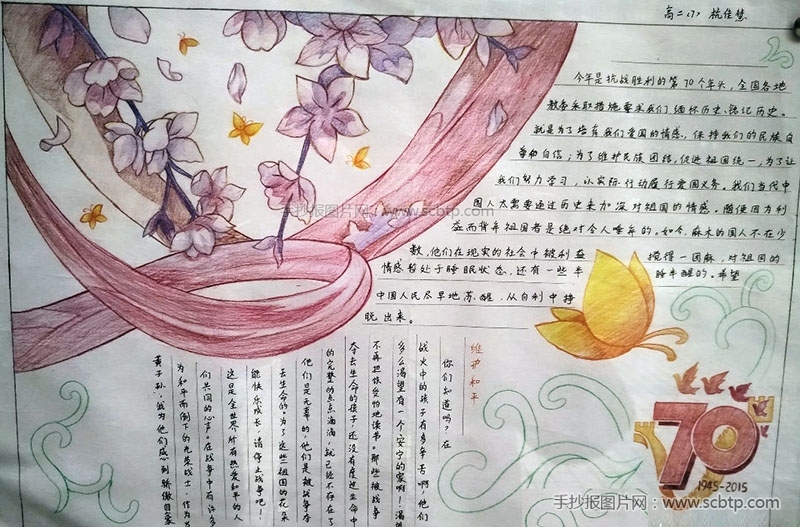 高二(7) 杭佳慧
今年是抗战胜利的第70个年头,全国各地
教委采取措施要求我们缅怀历史、铭记历史。
就是为了培育我们爱国的情感,保持我们的民族自
尊和自信;为了维护民族团结,促进祖国统一,为了让
我们努力学习,以实际行动履行爱国义务。我们当代中
国人太需要通过历史来加深对祖国的情感。随便因为利
益而背弃祖国者是绝对令人唾弃的。如今,麻木的国人不在少
数,他们在现实的社会中被利益 搅得一团麻,对祖国的
情感都处于睡眠状态,还有一些半 睡半醒的。希望
中国人民尽早地苏醒,从自利中挣
脱出来。
维护和平
你们知道吗?在
战火中的孩子有多辛苦啊,他们
多么渴望有一个安宁的家啊!渴望
不再担惊受怕地读书。那些被战争
夺去生命的孩子,还没有度过生命中
的完整的点点滴滴,就已经不存在了
他们是无辜的,他们是被战争夺
去生命的。为了这些祖国的花朵
能快乐成长,请停止战争吧!
这是全世界所有热爱和平的人
们共同的心声。在战争中有许多
为和平而倒下的先荣战士,作为炎
黄子孙,我为他们感到骄傲自豪
70
1945-2015
手抄报图片网:www.scbtp.com
手抄报图片网:www.scbtp.com